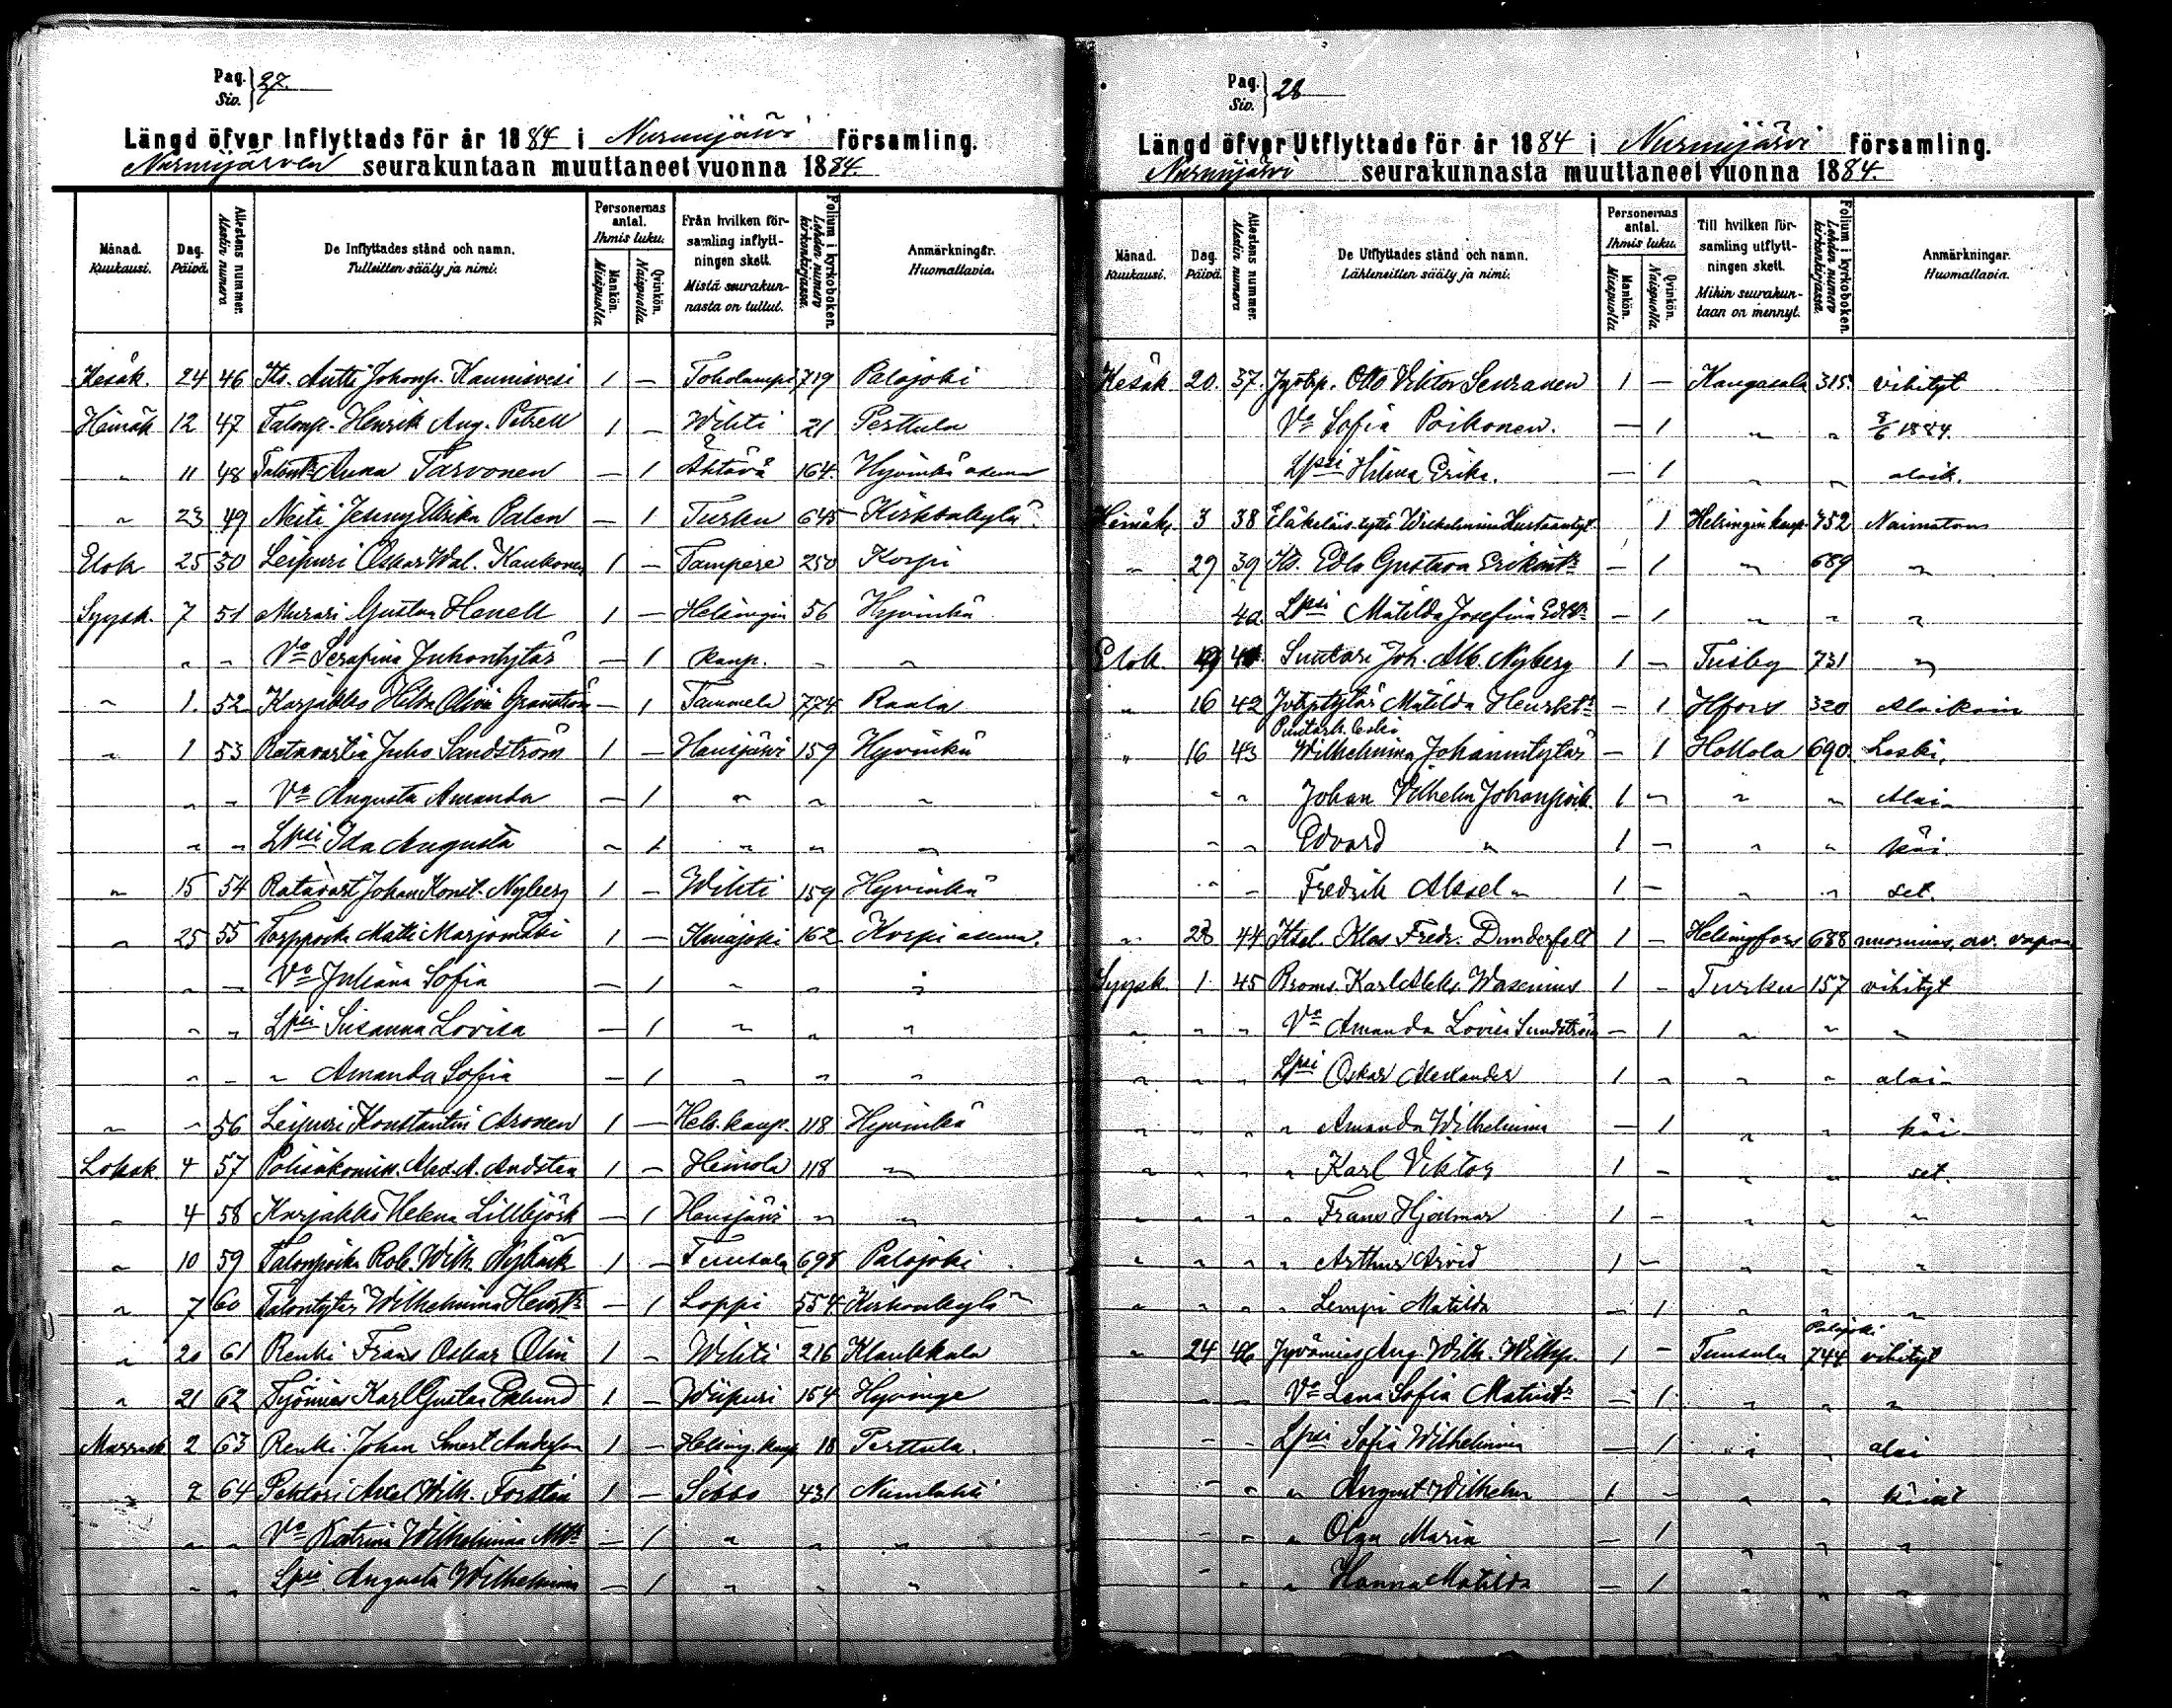 Pag. Siv. } 27.
Längd öfver Inflyttade för år 1884 i Nurmijärvi församling.
Nurmijärven seurakuntaan muuttaneet vuonna 1884.
Månad. Kuukausi. | Dag. Päivä. | Attestens nummer. Alestin numero | De Inflyttades stånd och namn. Tulleitten sääty ja nimi. | Personernas antal. Ihmis luku. Mankön. Miespuolia | Qvinkön. Naispuolia | Från hvilken församling inflyttningen skett. Mistä seurakunnasta on tullut. | Folium i kyrkoboken. Lehden numero kirkonkirjassa. | Anmärkningar. Huomattavia.
Kesäk. 24 46 Its. Antti Johanp. Kaunisvesi 1 — Toholampi 719 Palojoki
Heinäk 12 47 Talonp. Henrik Aug. Petrell 1 — Wihti 21 Perttula
" 11 48 Anna Tarvonen — 1 Ähtävä 164 Hyvinkä asema
" 23 49 Neiti Jenny Ulrika Palen — 1 Turku 645 Kirkonkylä
Elok 25 50 Leipuri Oskar Wal. Kaukonen 1 — Tampere 250 Korpi
Syysk. 7 51 Murari Gustav Hanell 1 — Helsingin 56 Hyvinkä
" " Vo Serafina Juhontytär — 1 kaup. " "
" 1. 52 Karjakko Hilda Olivia Granström — 1 Tammela 774 Raala
" 1 53 Ratavartia Juho Sandström 1 — Hausjärvi 159 Hyvinkä
" " Vo Augusta Amanda — 1 " " "
" " Lpsi Ida Augusta " 1 " " "
" 15 54 Ratavart Johan Konst. Nyberg 1 — Wihti 159 Hyvinkä
" 25 55 Torppoika Matti Marjomäki 1 — Ilmajoki 162 Korpi asema.
" — Vo Juliana Sofia — 1 " " "
" " Lpsi Susanna Lovisa — 1 " " "
" " " Amanda Sofia — 1 " " "
" " 56 Leipuri Konstantin Aronen 1 — Hels. kaup. 118 Hyvinkä
Lokak. 4 57 Polisikomis. Alex. A. Andsten 1 — Heinola 118 "
" 4 58 Karjakko Helena Lillbjörk — 1 Hausjärvi " "
" 10 59 Talonpoika Rob. Wilh. Nybäck 1 — Tuusula 698 Palojoki
" 7 60 Talontytär Wilhelmina Henrts — 1 Loppi 554 Kirkonkylä
" 20 61 Renki Frans Oskar Olin 1 — Wihti 216 Klaukkala
" 21 62 Työmies Karl Gustav Eklund 1 — Wiipuri 154 Hyvinge
Marrask 2 63 Renki Johan Andersson 1 — Helsing. kaup 18 Perttula.
" 2 64 Pehtori Axel Wilh. Forstén 1 — Sibbo 431 Numlahti
" " Vo Katrina Wilhelmina — 1 " " "
" " Lpsi Augusta Wilhelmina — 1 " " "
Pag. Siv. } 28
Längd öfver Utflyttade för år 1884 i Nurmijärvi församling.
Nurmijärvi seurakunnasta muuttaneet vuonna 1884
Månad. Kuukausi. | Dag. Päivä. | Attestens nummer. Alestin numero | De Utflyttades stånd och namn. Lähteneitten sääty ja nimi. | Personernas antal. Ihmis luku. Mankön. Miespuolia | Qvinkön. Naispuolia. | Till hvilken församling utflyttningen skett. Mihin seurakuntaan on mennyt. | Folium i kyrkoboken. Lehden numero kirkonkirjassa. | Anmärkningar. Huomattavia.
Kesäk 20. 37. Otto Viktor Seuranen 1 — Kangasala 315. vihityt
Vo Sofia Poikonen. — 1 " " 8/6 1884.
Lpsi Hilma Erika. — 1 " " alaik.
Heinäk 3 38 Eläkeläis. tyttö Wilhelmina Kustaantyt. 1 Helsingin kaup. 752 Naimaton
" 29 39 Its. Edla Gustava Erikints — 1 " 689 "
40. Lpsi Matilda Josefina — 1 " " "
Elok. 19 41. Suutari Joh. Alb. Nyberg 1 — Tusby 731 "
" 16 42 Matilda Henrkts — 1 Hfors 320 Alaikäin
" 16 43 Wilhelmina Johanintytär — 1 Hollola 690. Leski.
" " Johan Vilhelm Johanpoik. 1 — " " Alai-
" " Edvard " 1 — " " käi
" — Fredrik Aksel " 1 — " " set.
" 28 44 Itsel. Klas Fredr. Dunderfelt 1 — Helsingfors 688 nuorimies, av. vapaa
Syysk. 1. 45 Karl Aleks. Wasenius 1 — Turku 157 vihityt
" " " Vo Amanda Lovisa Sundström — 1 " " "
" " " Lpsi Oskar Alexander 1 " " " alai-
" " " " Amanda Wilhelmina — 1 " " käi-
" " " " Karl Viktor 1 — " " set.
" " " " Frans Hjalmar 1 — " " "
" " " " Arthur Arvid 1 — " " "
" " " " Lempi Matilda — 1 " " "
" 24 46 Jyvämies Aug. Wilh. Wilhp. 1 — Tuusula Palojoki 744 vihityt
" " Vo Lena Sofia Matints — 1 " " "
" " Lpsi Sofia Wilhelmina — 1 " " alai
" " " August Wilhelm 1 — " " käiset
" " " Olga Maria — 1 " " "
" " " Hanna Matilda — 1 " " "